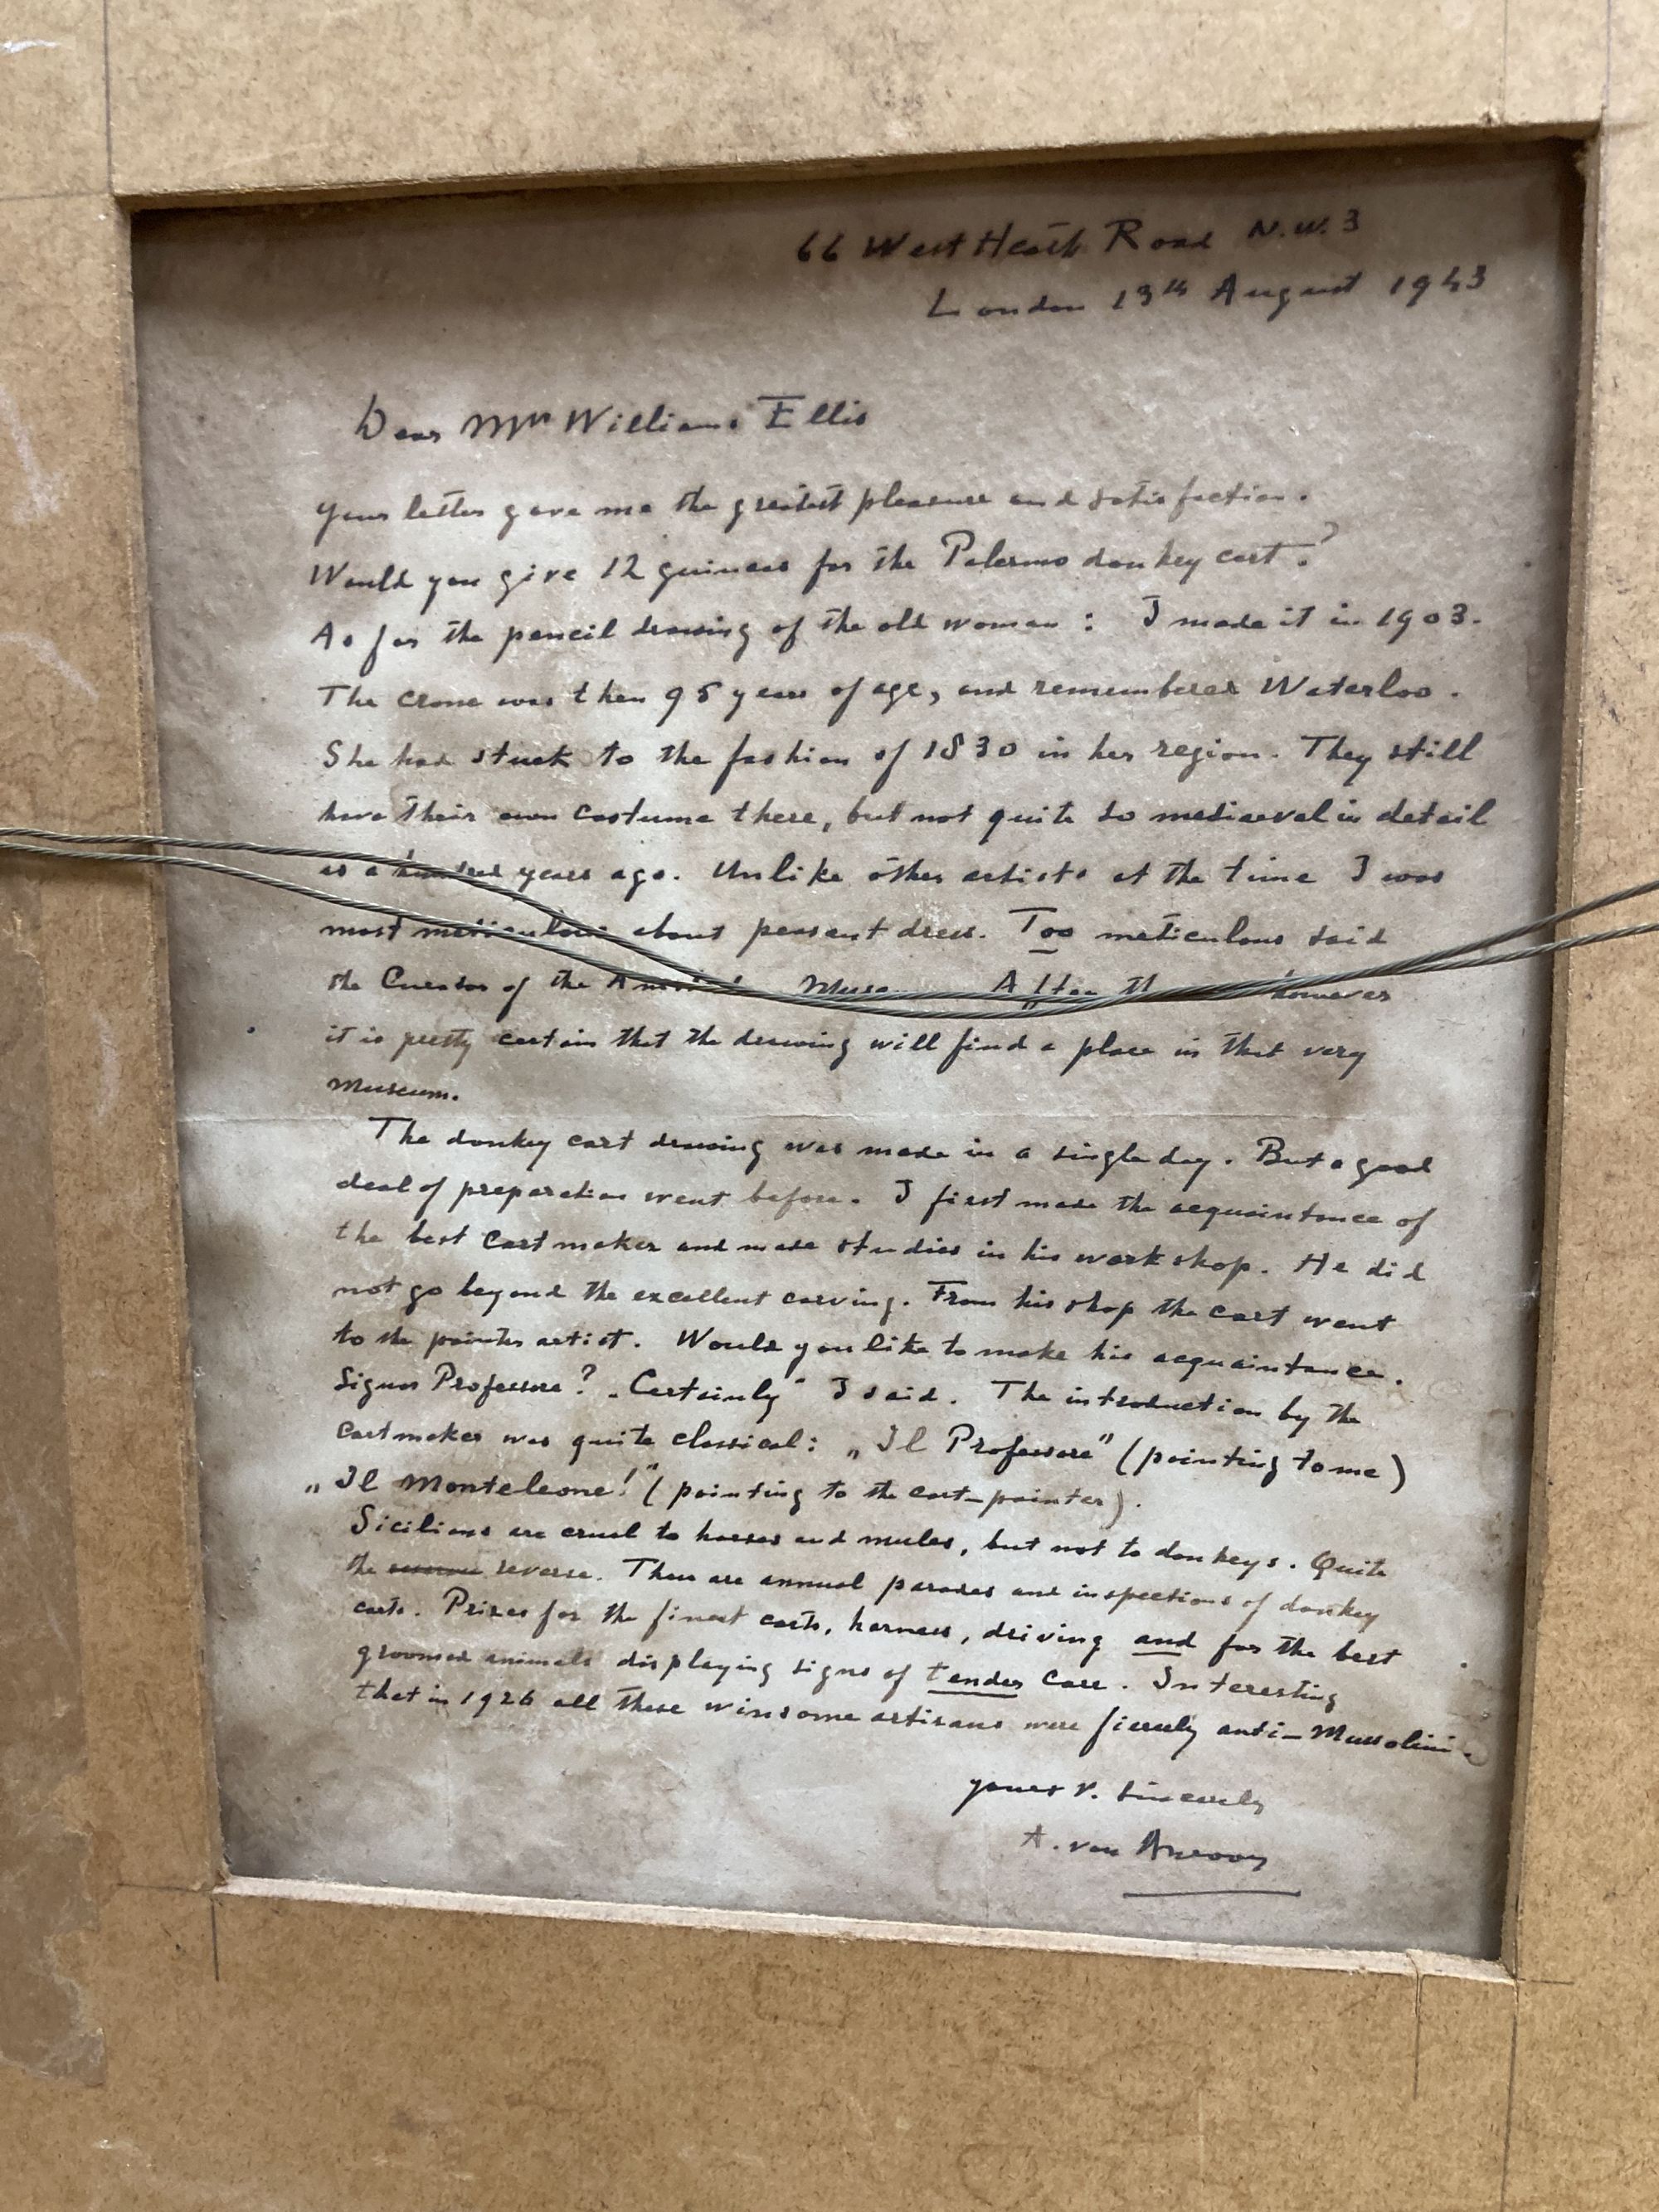 66 West Heath Road N.W.3
London 13th August 1943
Dear Mr Williams Ellis
Your letter gave me the greatest pleasure and satisfaction.
Would you give 12 guineas for the Palermo donkey cart?
As for the pencil drawing of the old woman: I made it in 1903.
The crone was then 95 years of age, and remembered Waterloo.
She had stuck to the fashion of 1830 in her region. They still
have their own costume there, but not quite so mediaeval in detail
as a hundred years ago. Unlike other artists at the time I was
most meticulous about peasant dress. Too meticulous said
the Curator of the Museum After the however
it is pretty certain that the drawing will find a place in that very
museum.
The donkey cart drawing was made in a single day. But a good
deal of preparation went before. I first made the acquaintance of
the best cartmaker and made studies in his workshop. He did
not go beyond the excellent carving. From his shop the cart went
to the painter artist. Would you like to make his acquaintance.
Signor Professore? „Certainly" I said. The introduction by the
cartmaker was quite classical: „Il Professore" (pointing to me)
„Il Monteleone!" (pointing to the cart-painter).
Sicilians are cruel to horses and mules, but not to donkeys. Quite
the reverse. There are annual parades and inspections of donkey
carts. Prizes for the finest carts, harness, driving and for the best
groomed animals displaying signs of tender care. Interesting
that in 1926 all these winsome artisans were fiercely anti-Mussolini.
yours v. sincerely
A. van Anrooy